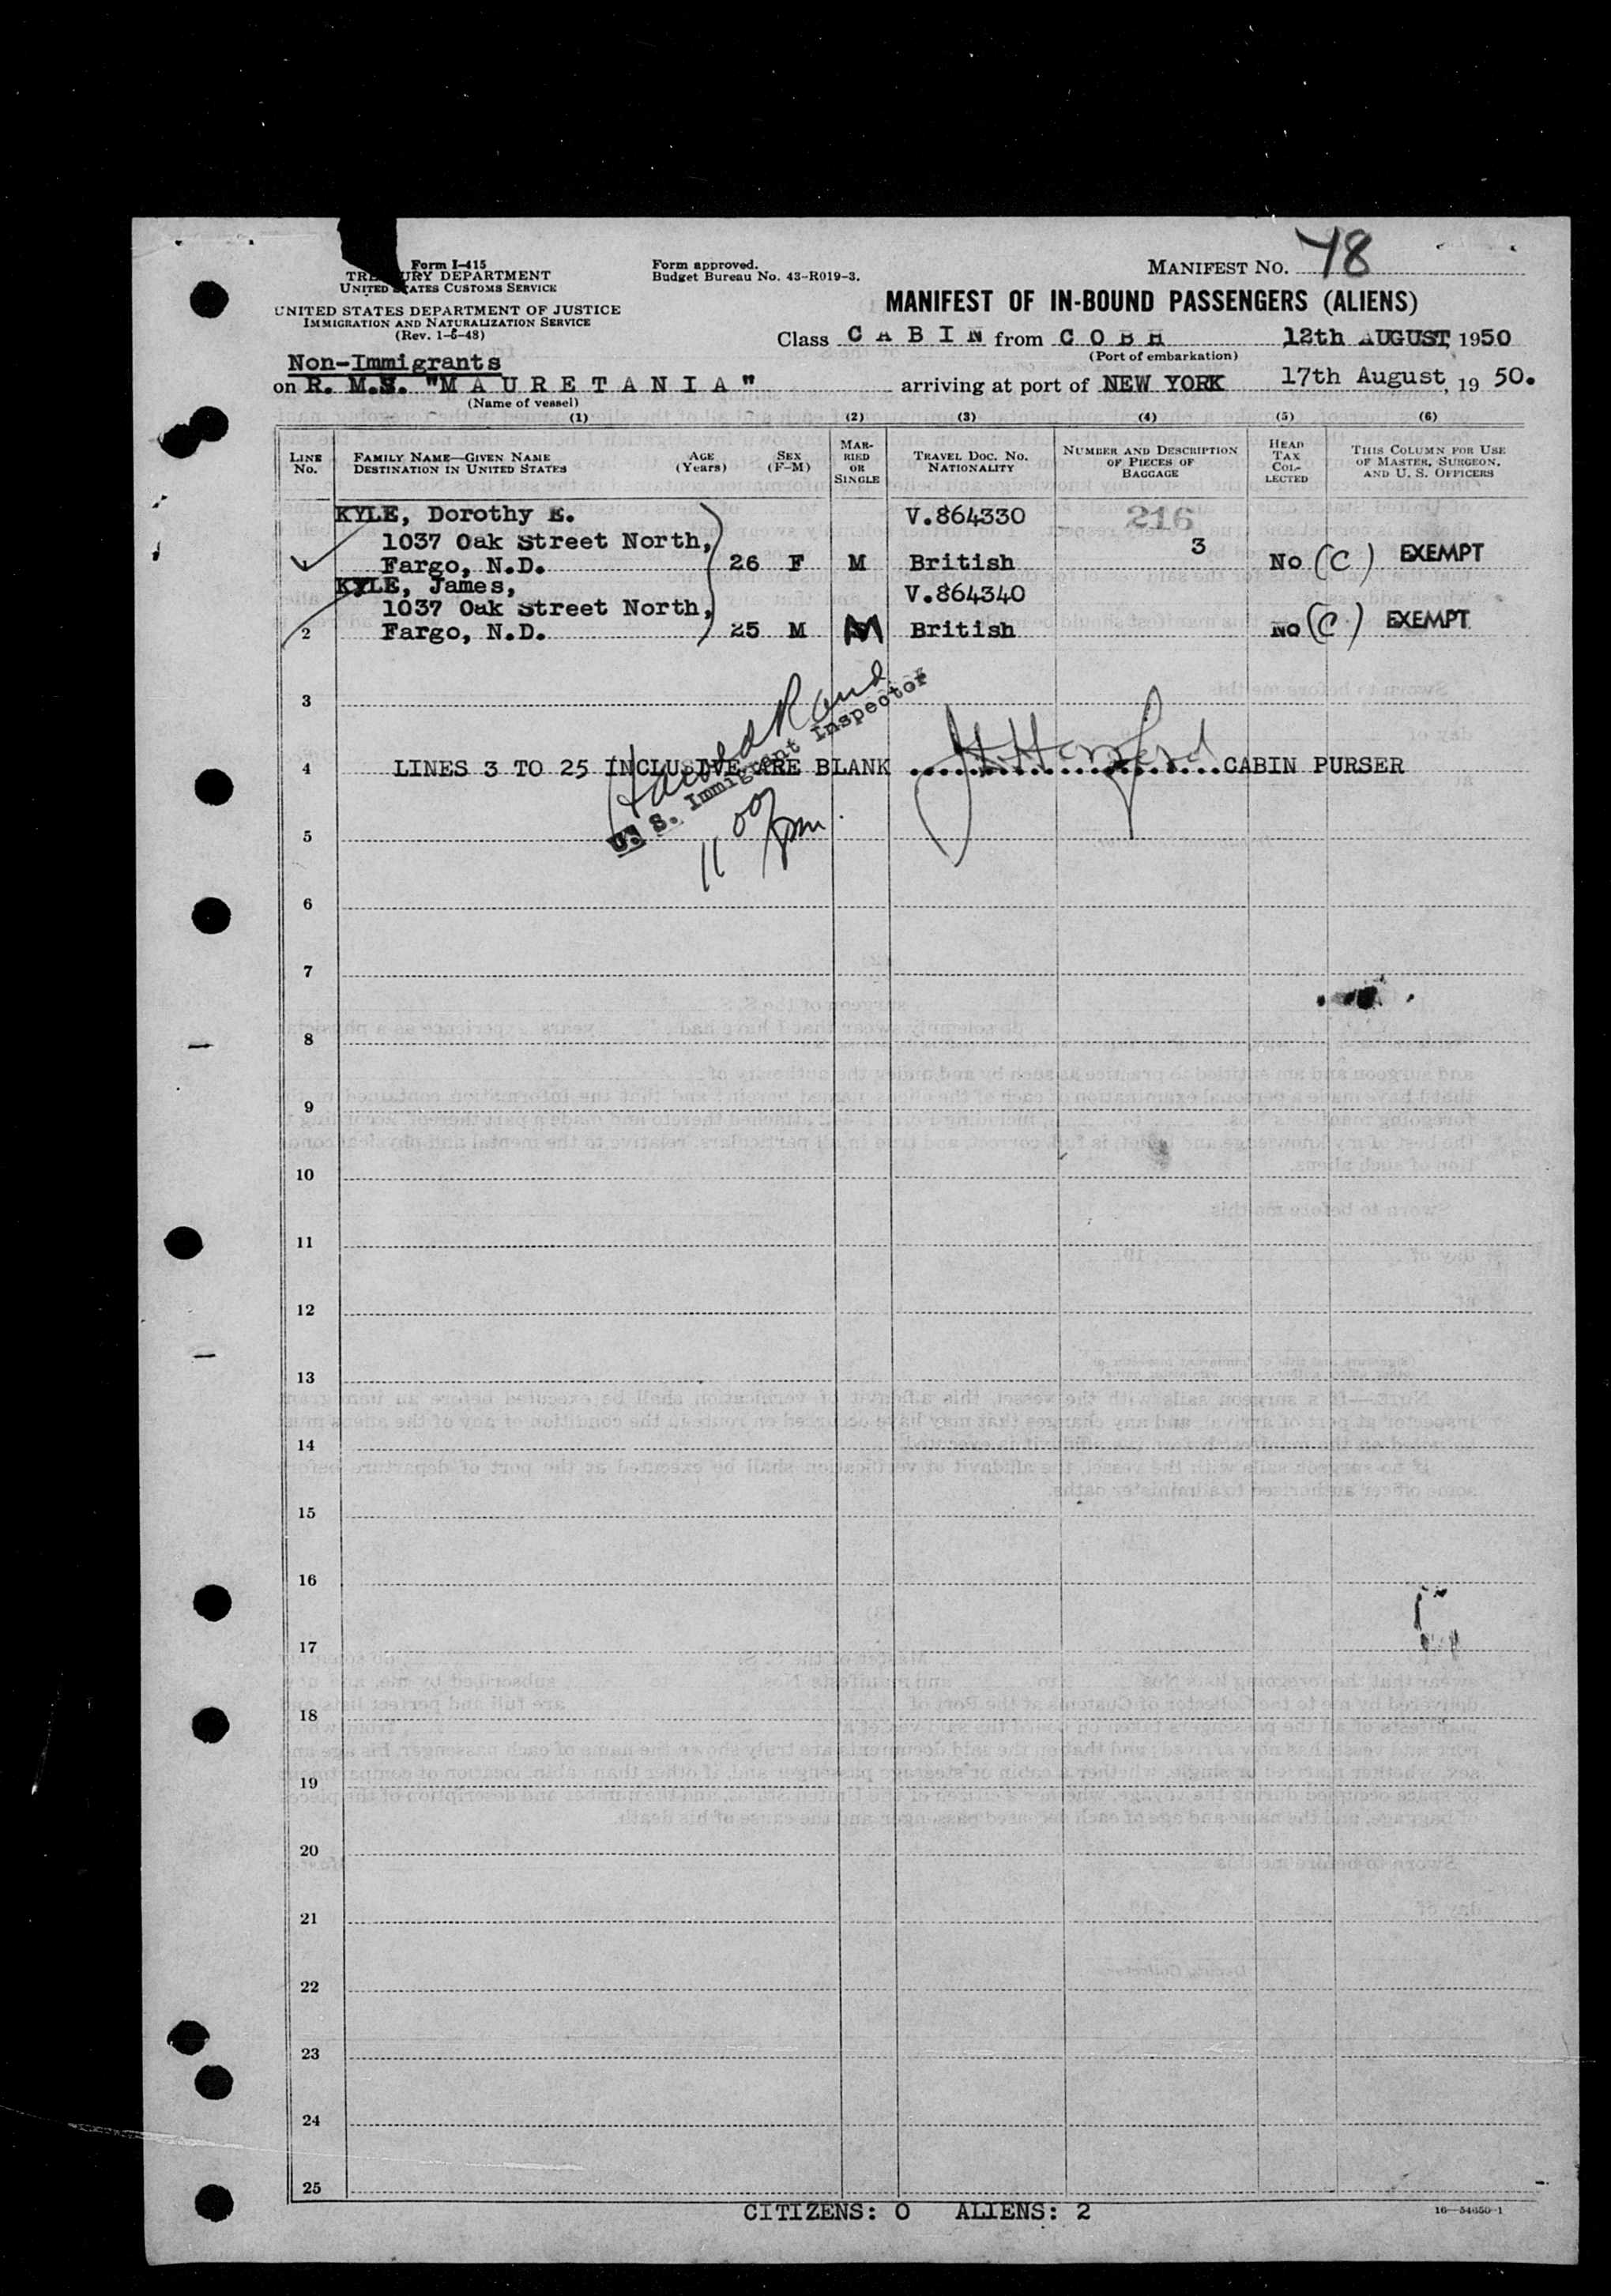 78
Form I-415
TREASURY DEPARTMENT
UNITED STATES CUSTOMS SERVICE
Form approved.
Budget Bureau No. 43-R019-3.
MANIFEST NO.
UNITED STATES DEPARTMENT OF JUSTICE
IMMIGRATION AND NATURALIZATION SERVICE
(Rev. 1-5-48)
MANIFEST OF IN-BOUND PASSENGERS (ALIENS)
Class CABIN from COBH 12th AUGUST, 1950
(Port of embarkation)
Non-Immigrants
on R. M.S. "MAURETANIA" arriving at port of NEW YORK 17th August, 19 50.
(Name of vessel)
(1) (2) (3) (4) (5) (6)
LINE No. FAMILY NAME—GIVEN NAME DESTINATION IN UNITED STATES AGE (Years) SEX (F-M) MARRIED OR SINGLE TRAVEL DOC. NO. NATIONALITY NUMBER AND DESCRIPTION OF PIECES OF BAGGAGE HEAD TAX COLLECTED THIS COLUMN FOR USE OF MASTER, SURGEON, AND U. S. OFFICERS
KYLE, Dorothy E. V.864330 216
1037 Oak Street North, 3
1 Fargo, N.D. 26 F M British No (C) EXEMPT
KYLE, James, V.864340
1037 Oak Street North,
2 Fargo, N.D. 25 M M British No (C) EXEMPT
3
U. S. Immigrant Inspector
4 LINES 3 TO 25 INCLUSIVE ARE BLANK CABIN PURSER
11 00 pm.
5
6
7
8
9
10
11
12
13
14
15
16
17
18
19
20
21
22
23
24
25
CITIZENS: 0 ALIENS: 2
16-54650-1